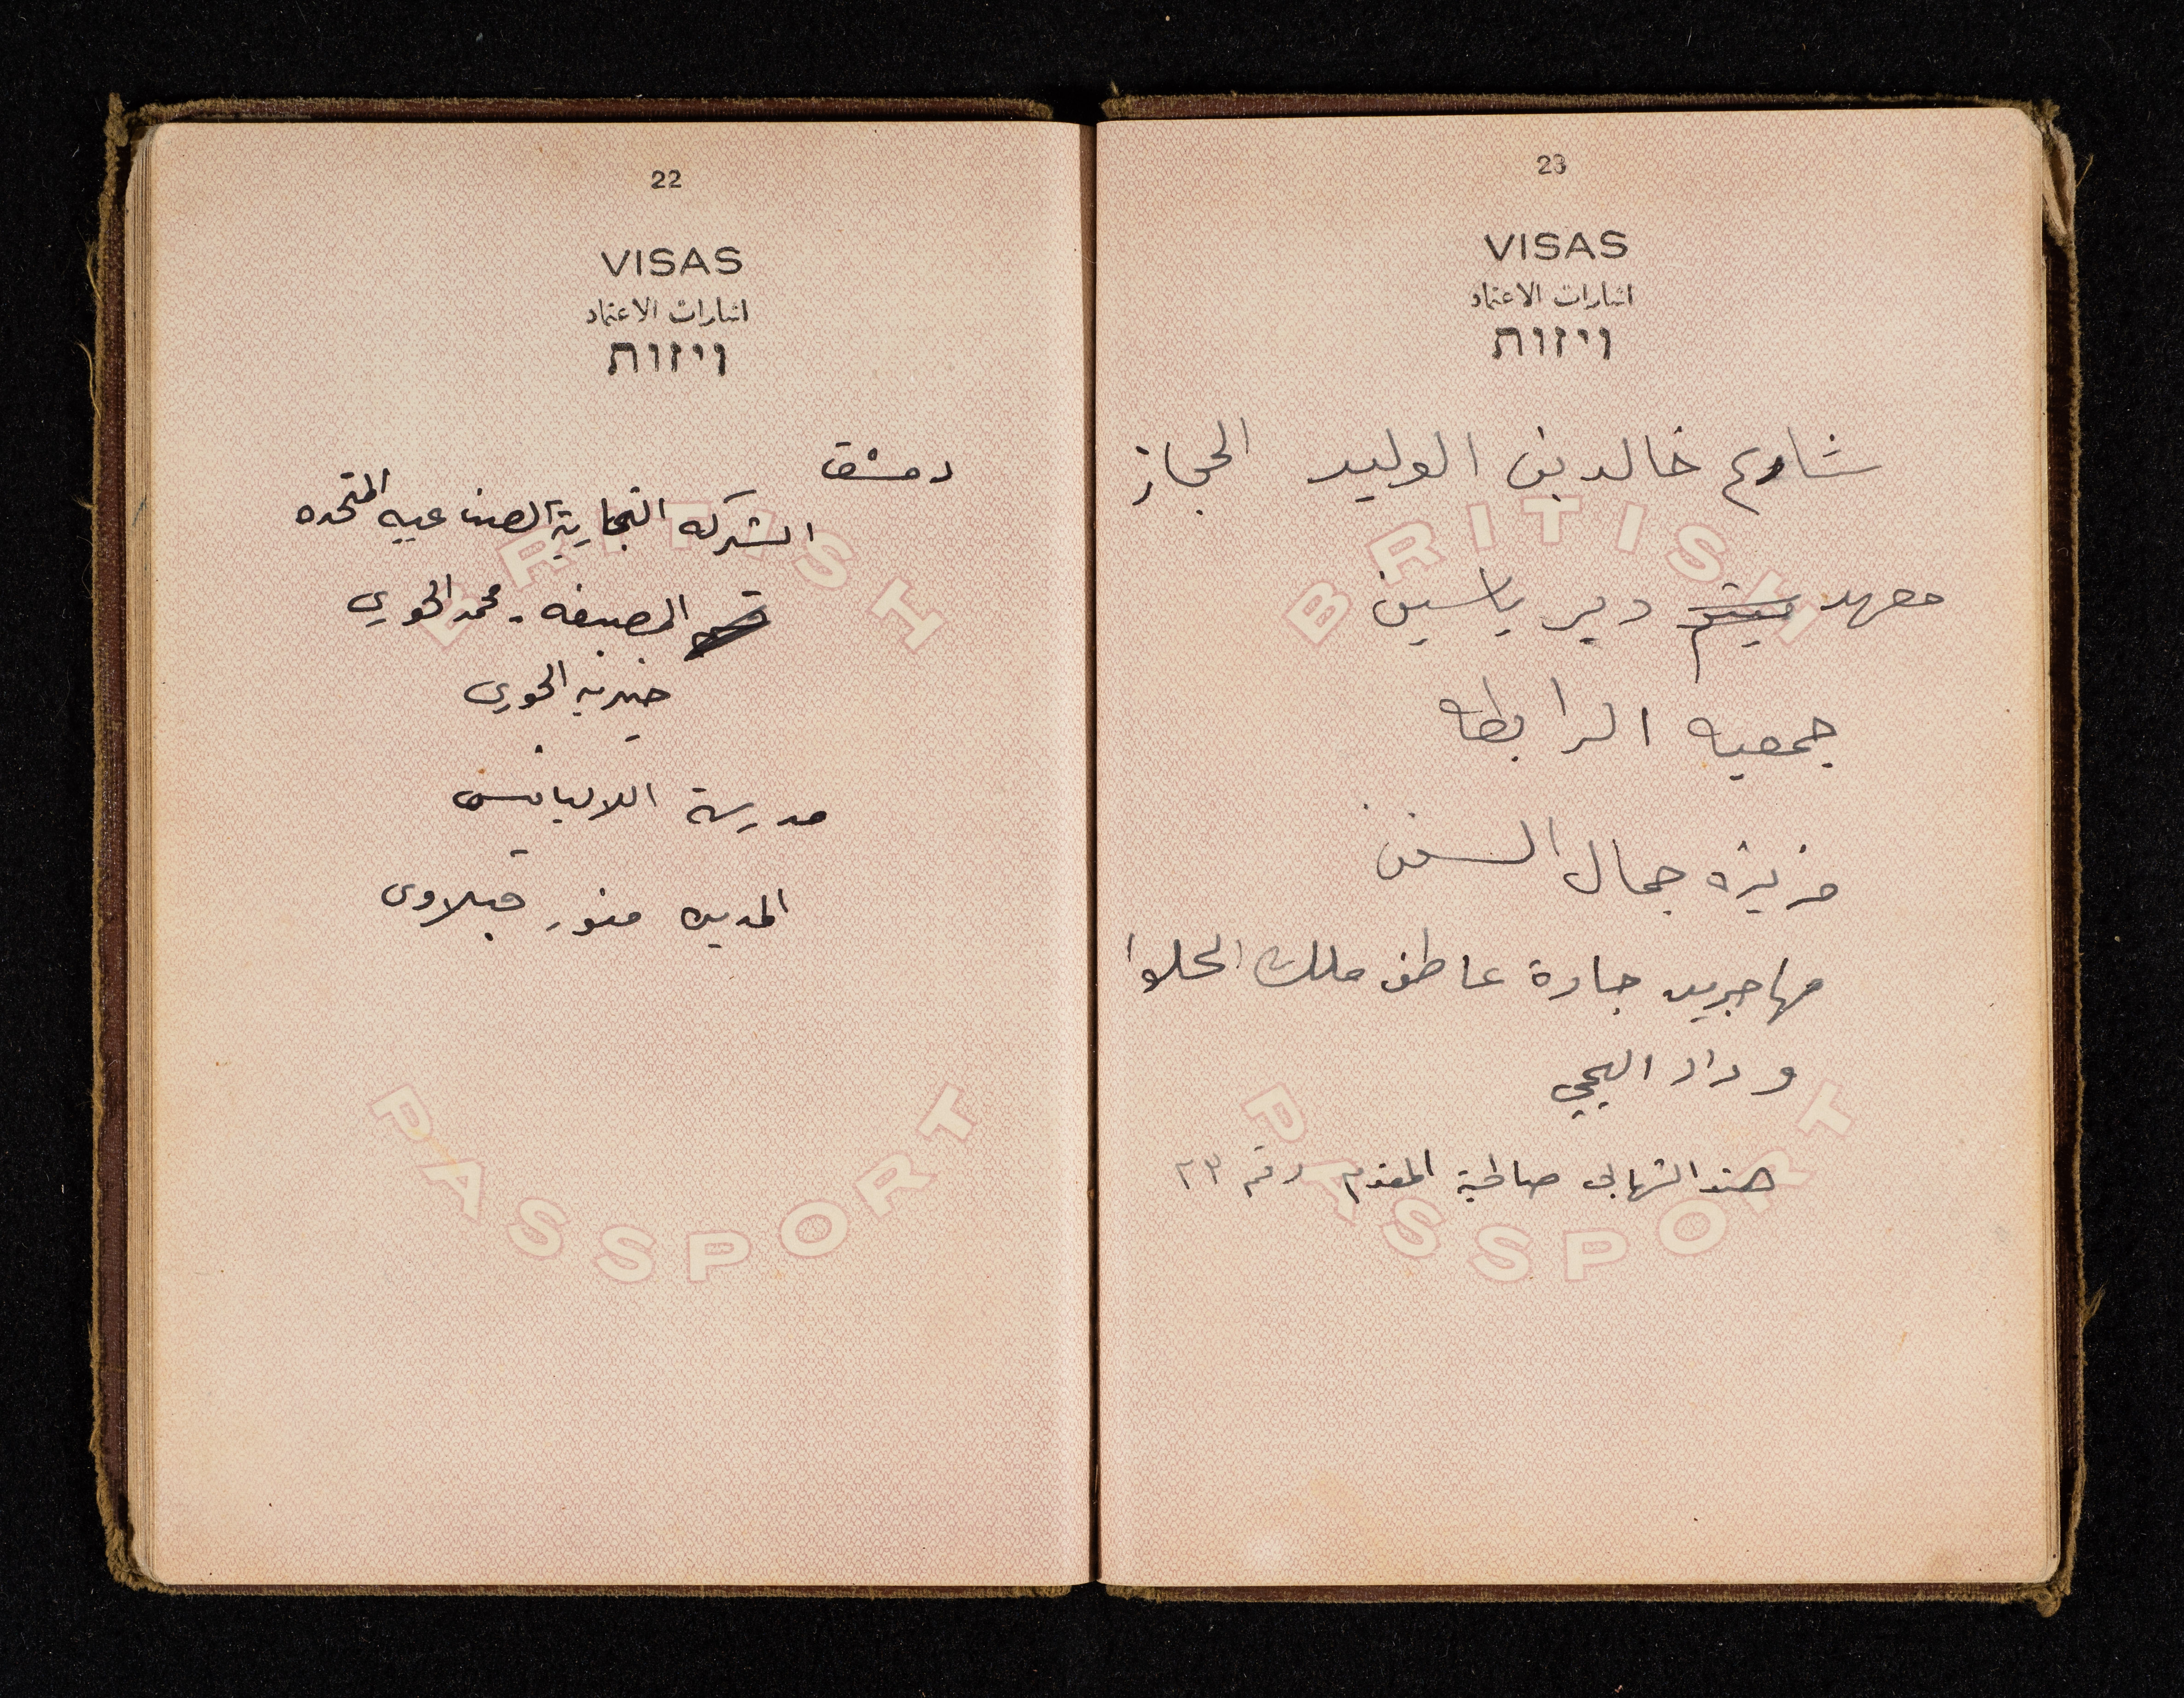 22
VISAS
اشارات الاعتماد
ויזות
دمشق
الشركه التجارية الصناعيه المتحده
المصبغه - محمد الخوري
خيريه الخوري
مدرسة اللاييك
المديره منور
BRITISH
PASSPORT
23
VISAS
اشارات الاعتماد
ויזות
شارع خالد بن الوليد الحجاز
معهد دير ياسين
جمعيه الرابطه
جمال
مهاجرين جادة عاطف ملك الحلوا
وداد
هند الشهابي صالحية المقدم رقم ٢٣
BRITISH
PASSPORT